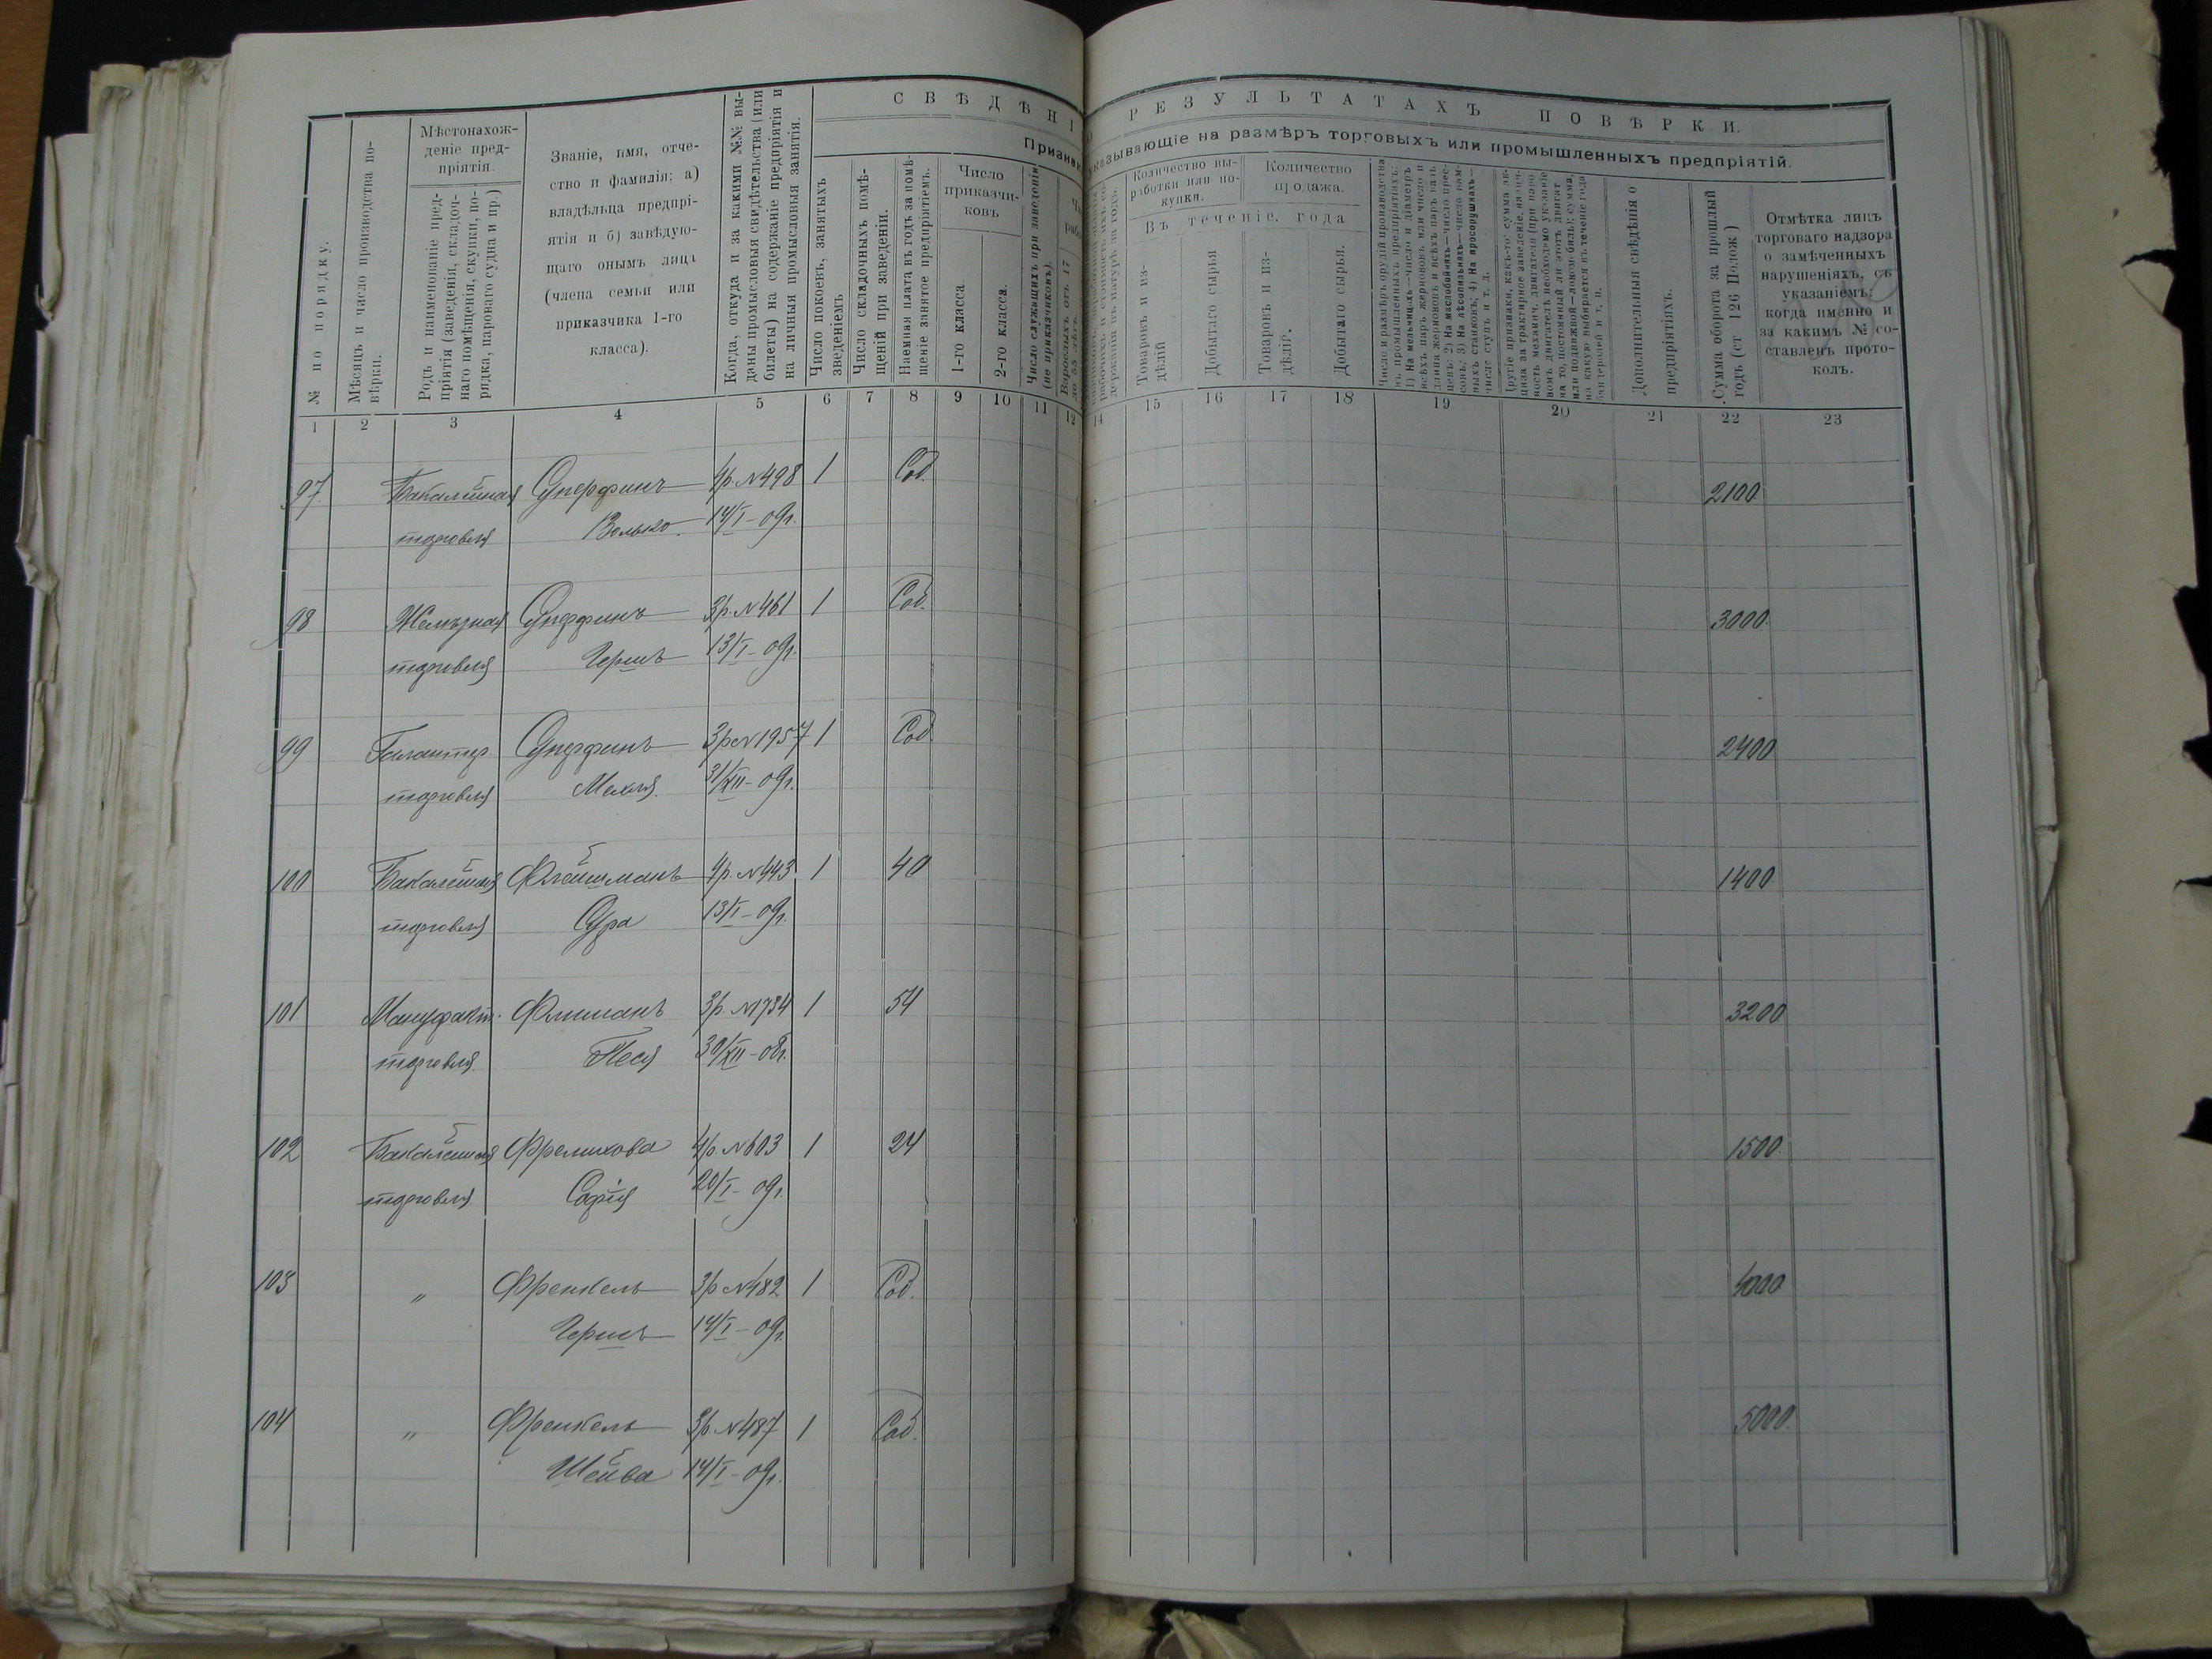 СВѢДѢНІ
О РЕЗУЛЬТАТАХЪ ПОВѢРКИ.
Признаки,
указывающіе на размѣръ торговыхъ или промышленныхъ предпріятій.
№ по порядку.
Мѣсяцъ и число производства по-
вѣрки.
Мѣстонахож-
деніе пред-
пріятія.
Родъ и наименованіе пред-
пріятія (заведенія, складоч-
наго помѣщенія, скупки, по-
рядка, пароваго судна и пр.)
Званіе, имя, отче-
ство и фамилія; а)
владѣльца предпрі-
ятія и б) завѣдую-
щаго онымъ лица
(члена семьи или
приказчика 1-го
класса).
Когда, откуда и за какими №№ вы-
даны промысловыя свидѣтельства (или
билеты) на содержаніе предпріятія и
на личныя промысловыя занятія.
Число покоевъ, занятыхъ
зведеніемъ
Число складочныхъ помѣ-
щеній при заведеніи.
Наемная плата въ годъ за помѣ-
щеніе занятое предпріятіемъ.
Число
приказчи-
ковъ
1-го класса
2-го класса.
Число служащихъ при заведеніи
(не приказчиковъ).
Взрослыхъ отъ 17
до 55 лѣтъ.
Количество вы-
работки или по-
купки.
Количество
продажа.
Въ теченіе года
Товаровъ и из-
дѣлій
Добытаго сырья
Товаровъ и из-
дѣлій.
Добытаго сырья.
Число и размѣръ орудій производства
въ промышленныхъ предпріятіяхъ:
1) На мельницахъ—число и діаметръ
всѣхъ паръ жерновокъ или число и
длина жерновокъ и всѣхъ паръ валь
цевъ; 2) На маслобойняхъ—число прес-
совъ; 3) На лѣсопильняхъ—число рам-
ныхъ станковъ; 4) На просорушкахъ—
число ступъ и т. д.
Другіе признаки, какъ-то: сумма ак-
циза за трактирное заведеніе, налич-
ность механич. двигателя (при паро
вомъ двигателѣ необходимо указаніе
на то, постоянный ли этотъ двигат
или подвижной—локомобиль); сумма,
на какую выбирается въ теченіе года
бандеролей и т. п.
Дополнительныя свѣдѣнія о
предпріятіяхъ.
Сумма оборота за прошлый
годъ (ст 126 Полож )
Отмѣтка лицъ
торговаго надзора
о замѣченныхъ
нарушеніяхъ, съ
указаніемъ:
когда именно и
за какимъ № со-
ставленъ прото-
колъ.
1 2 3 4 5 6 7 8 9 10 11 12 14 15 16 17 18 19 20 21 22 23
97 Бакалейная Суперфинъ 4р. №498 1 Соб. 2100
торговля Волько 14/I-09г.
98 Желѣзная Суперфинъ 3р. №461 1 Соб. 3000
торговля Гершъ 13/I-09г.
99 Галантер. Суперфинъ 3р №1957 1 Соб. 2400
торговля Мехля 31/XII-09г.
100 Бакалейная Флейшманъ 4р. №443 1 40 1400
торговля Сура 13/I-09г.
101 Мануфакт. Флишанъ 3р. №1734 1 54 3200
торговля Песя 30/XII-08г.
102 Бакалейная Фреликова 4р. №603 1 24 1500
торговля Софія 20/I-09г.
103 „ Френкель 3р №482 1 Соб. 4000
Гершъ 14/I-09г.
104 „ Френкель 3р. №487 1 Соб. 5000
Шейва 14/I-09г.